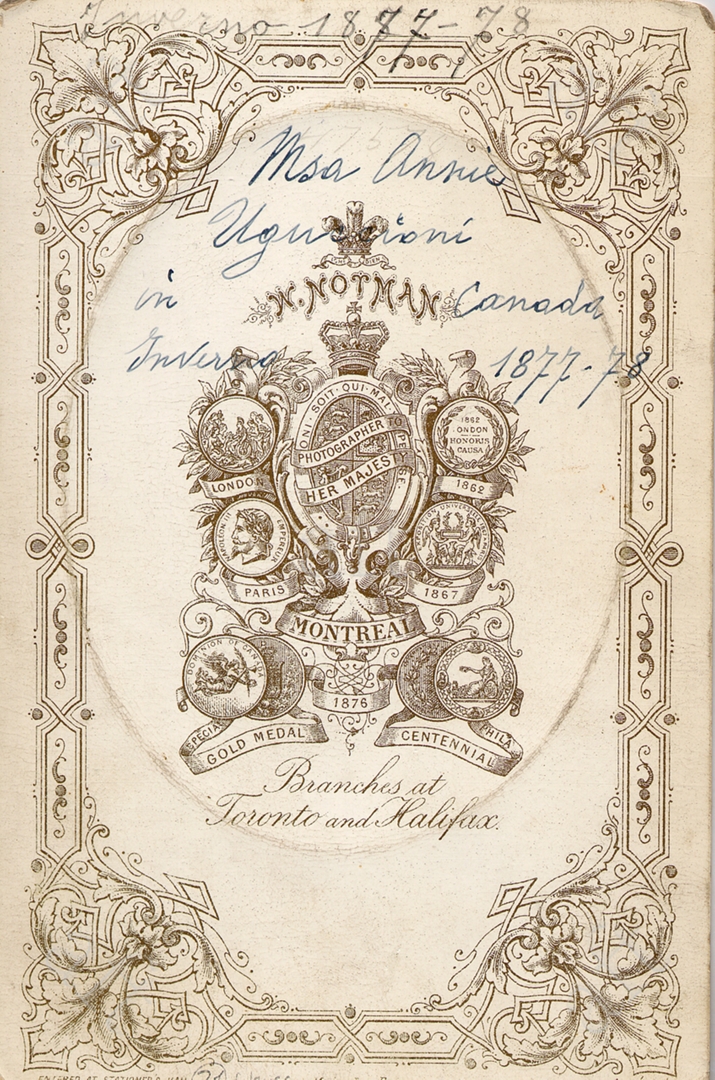 Inverno 1877-78
Msa Annie
Uguccioni
in Canada
Inverno 1877-78
W. NOTMAN
ONI·SOIT·QUI·MAL
PHOTOGRAPHER TO
HER MAJESTY
1862
ONDON
HONORIS
CAUSA
LONDON
1862
PARIS
1867
MONTREAL
DOMINION OF
1876
SPECIAL GOLD MEDAL
CENTENNIAL PHILA
Branches at
Toronto and Halifax.
ENTERED AT STATIONER'S